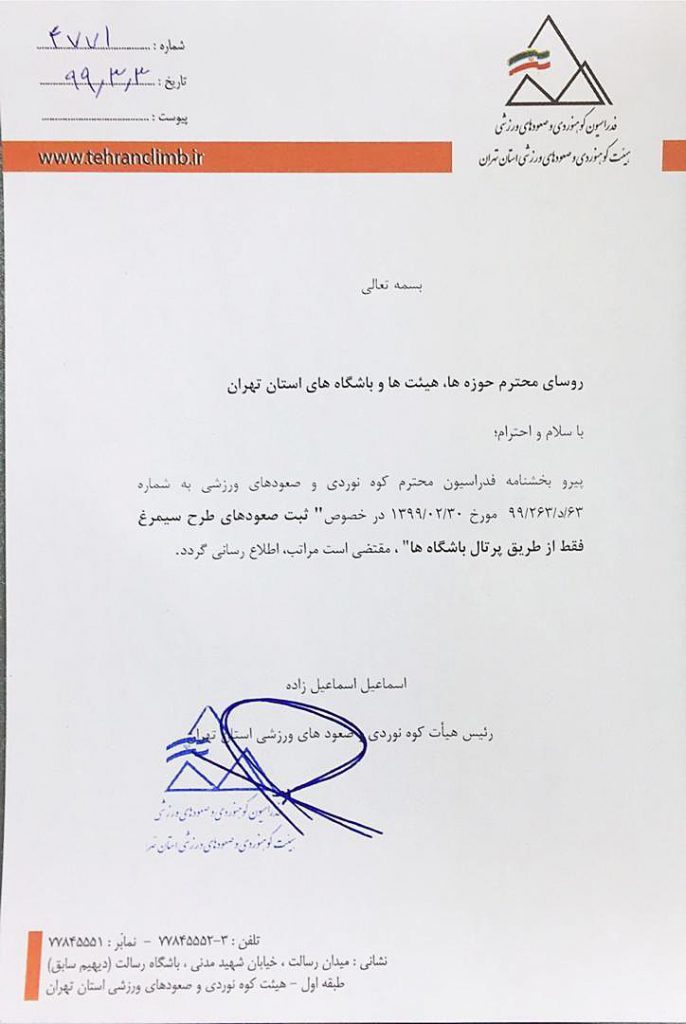 شماره : ۴۷۷۱
تاریخ : ۹۹,۳,۳
پیوست :
فدراسیون کوهنوردی و صعودهای ورزشی
هیئت کوهنوردی و صعودهای ورزشی استان تهران
www.tehranclimb.ir
بسمه تعالی
روسای محترم حوزه ها، هیئت ها و باشگاه های استان تهران
با سلام و احترام؛
پیرو بخشنامه فدراسیون محترم کوه نوردی و صعودهای ورزشی به شماره
۹۹/۲۶۳/د/۶۳ مورخ ۱۳۹۹/۰۲/۳۰ در خصوص" ثبت صعودهای طرح سیمرغ
فقط از طریق پرتال باشگاه ها" ، مقتضی است مراتب، اطلاع رسانی گردد.
اسماعیل اسماعیل زاده
رئیس هیأت کوه نوردی و صعود های ورزشی استان تهران
فدراسیون کوهنوردی و صعودهای ورزشی
هیئت کوهنوردی و صعودهای ورزشی استان تهران
تلفن : ۳-۷۷۸۴۵۵۵۲ - نمابر : ۷۷۸۴۵۵۵۱
نشانی : میدان رسالت ، خیابان شهید مدنی ، باشگاه رسالت (دیهیم سابق)
طبقه اول - هیئت کوه نوردی و صعودهای ورزشی استان تهران